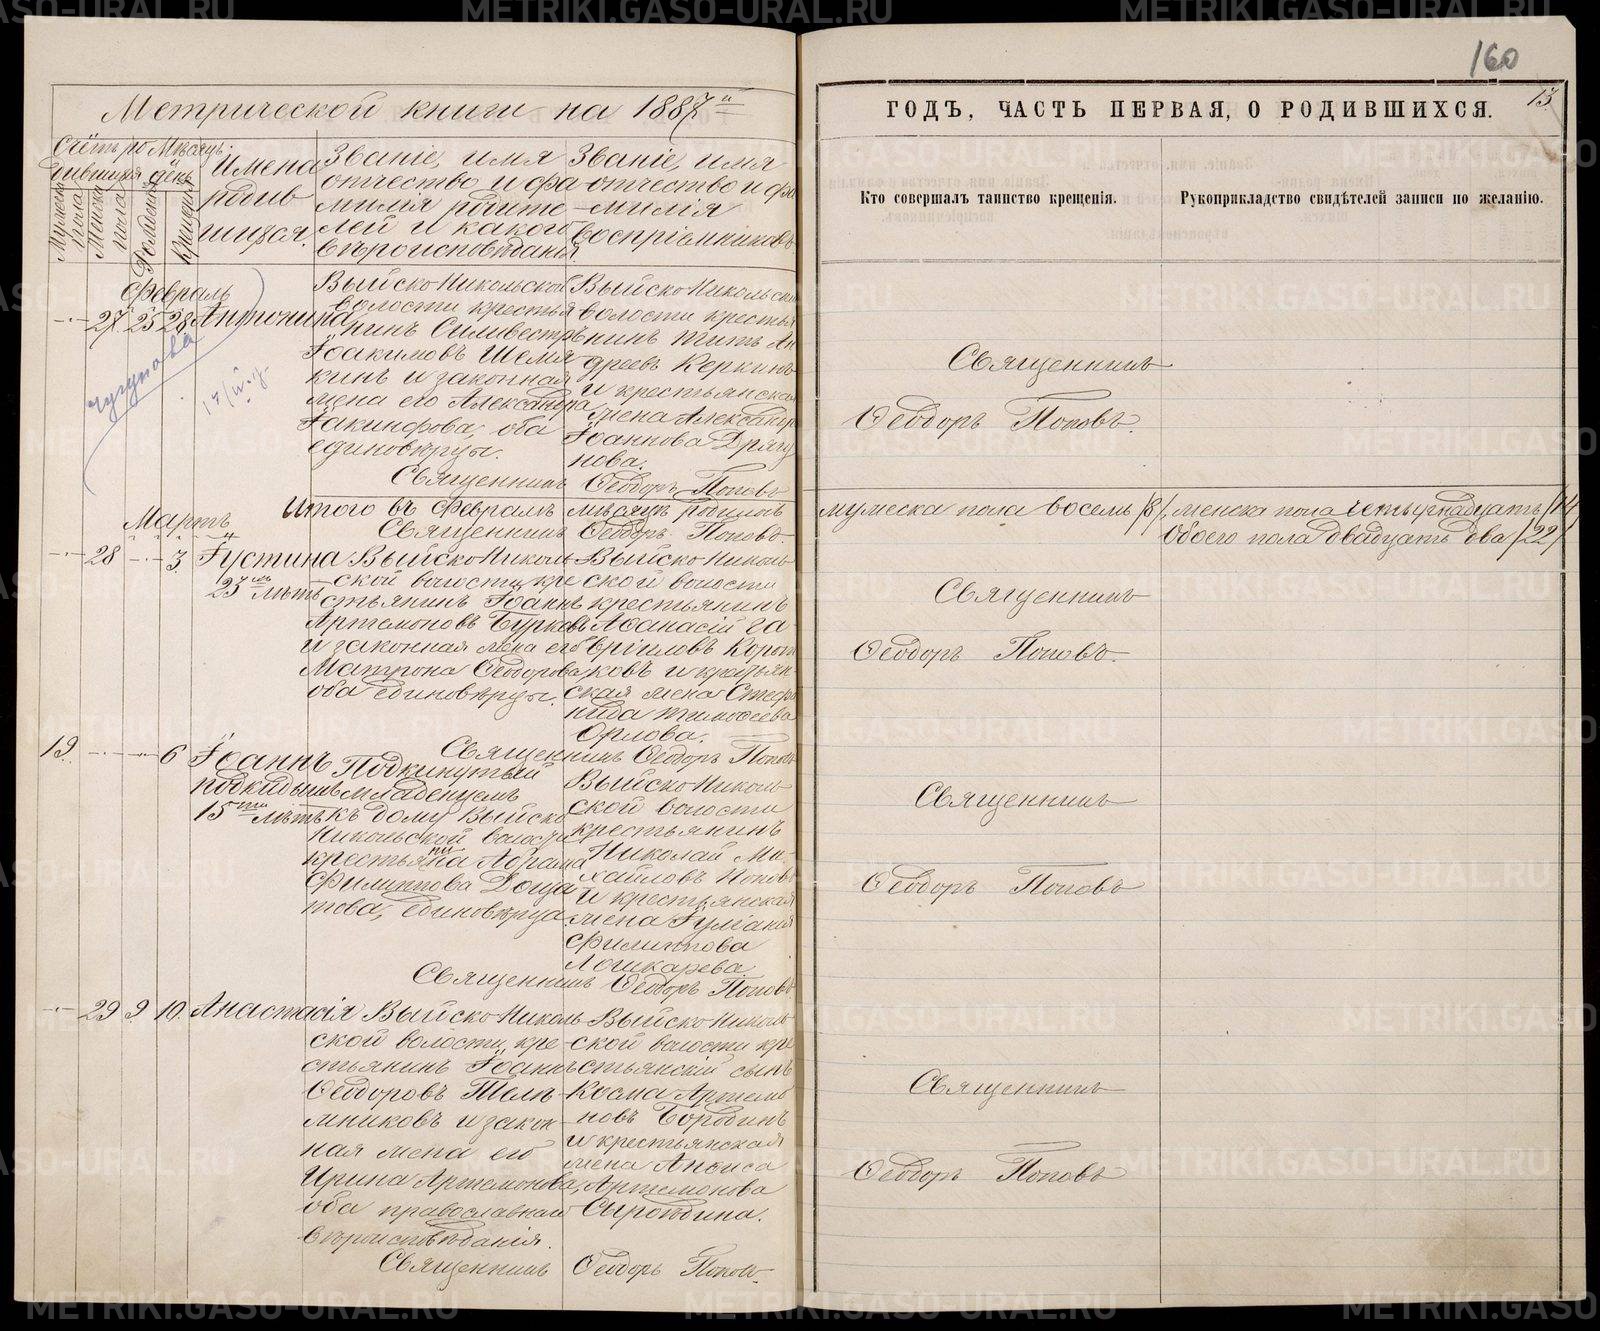 160
13
Метрической книги на 1887й
ГОДЪ, ЧАСТЬ ПЕРВАЯ, О РОДИВШИХСЯ.
Счётъ родившихся
Мужеска пола
Женска пола
Мѣсяцъ и день
Рожденія
Крещенія
Имена
родив
шихся.
Званіе, имя
отчество и фа
милія родите
лей и какого
вѣроисповѣданія.
Званіе, имя
отчество и фа
милія
воспріемниковъ
Кто совершалъ таинство крещенія.
Рукоприкладство свидѣтелей записи по желанію.
Февраль
27 25 28 Антонина
Чугунова
Выйско Никольской
волости крестья
нинъ Силивестръ
Іоакимовъ Шемя
кинъ и законная
жена его Александра
Іакинфова, оба
единовѣрцы.
Выйско Никольской
волости крестья
нинъ Титъ Ан
дреевъ Керкинъ
и крестьянская
жена Александра
Іоаннова Дрягу
нова.
Священникъ Ѳеодоръ Поповъ
Священникъ
Ѳеодоръ Поповъ.
Итого въ Февралѣ мѣсяцѣ родилось
мужеска пола восемь /8/, женска пола четырнадцать /14
Обоего пола двадцать два /22/
Священникъ Ѳеодоръ Поповъ
Мартъ
28 3 Іустина
23 лѣтъ
Выйско Николь
ской волости кре
стьянинъ Іоаннъ
Артемоновъ Бурковъ
и законная жена его
Матрона Ѳеодорова
оба единовѣрцы.
Выйско Николь
ской волости
крестьянинъ
Аѳанасій Га
вріиловъ Корот
ковъ и крестьян
ская жена Стефа
нида Тимоѳеева
Орлова.
Священникъ Ѳеодоръ Поповъ
Священникъ
Ѳеодоръ Поповъ.
19 6 Іоаннъ
подкидышъ
15ти лѣтъ
Подкинутый
младенцемъ
къ дому Выйско
Никольской волости
крестьянина Абрама
Филиппова Доща
това, единовѣрца.
Выйско Николь
ской волости
крестьянинъ
Николай Ми
хайловъ Поповъ
и крестьянская
жена Іуліанія
Филиппова
Лошкарева.
Священникъ Ѳеодоръ Поповъ
Священникъ
Ѳеодоръ Поповъ
29 9 10 Анастасія
Выйско Николь
ской волости кре
стьянинъ Іоаннъ
Ѳеодоровъ Теля
мниковъ и закон
ная жена его
Ирина Артемонова,
оба православнаго
вѣроисповѣданія.
Выйско Николь
ской волости кре
стьянскій сынъ
Косма Артемо
новъ Бородинъ
и крестьянская
жена Анѳиса
Артемонова
Сыробдина.
Священникъ Ѳеодоръ Поповъ
Священникъ
Ѳеодоръ Поповъ
METRIKI.GASO-URAL.RU